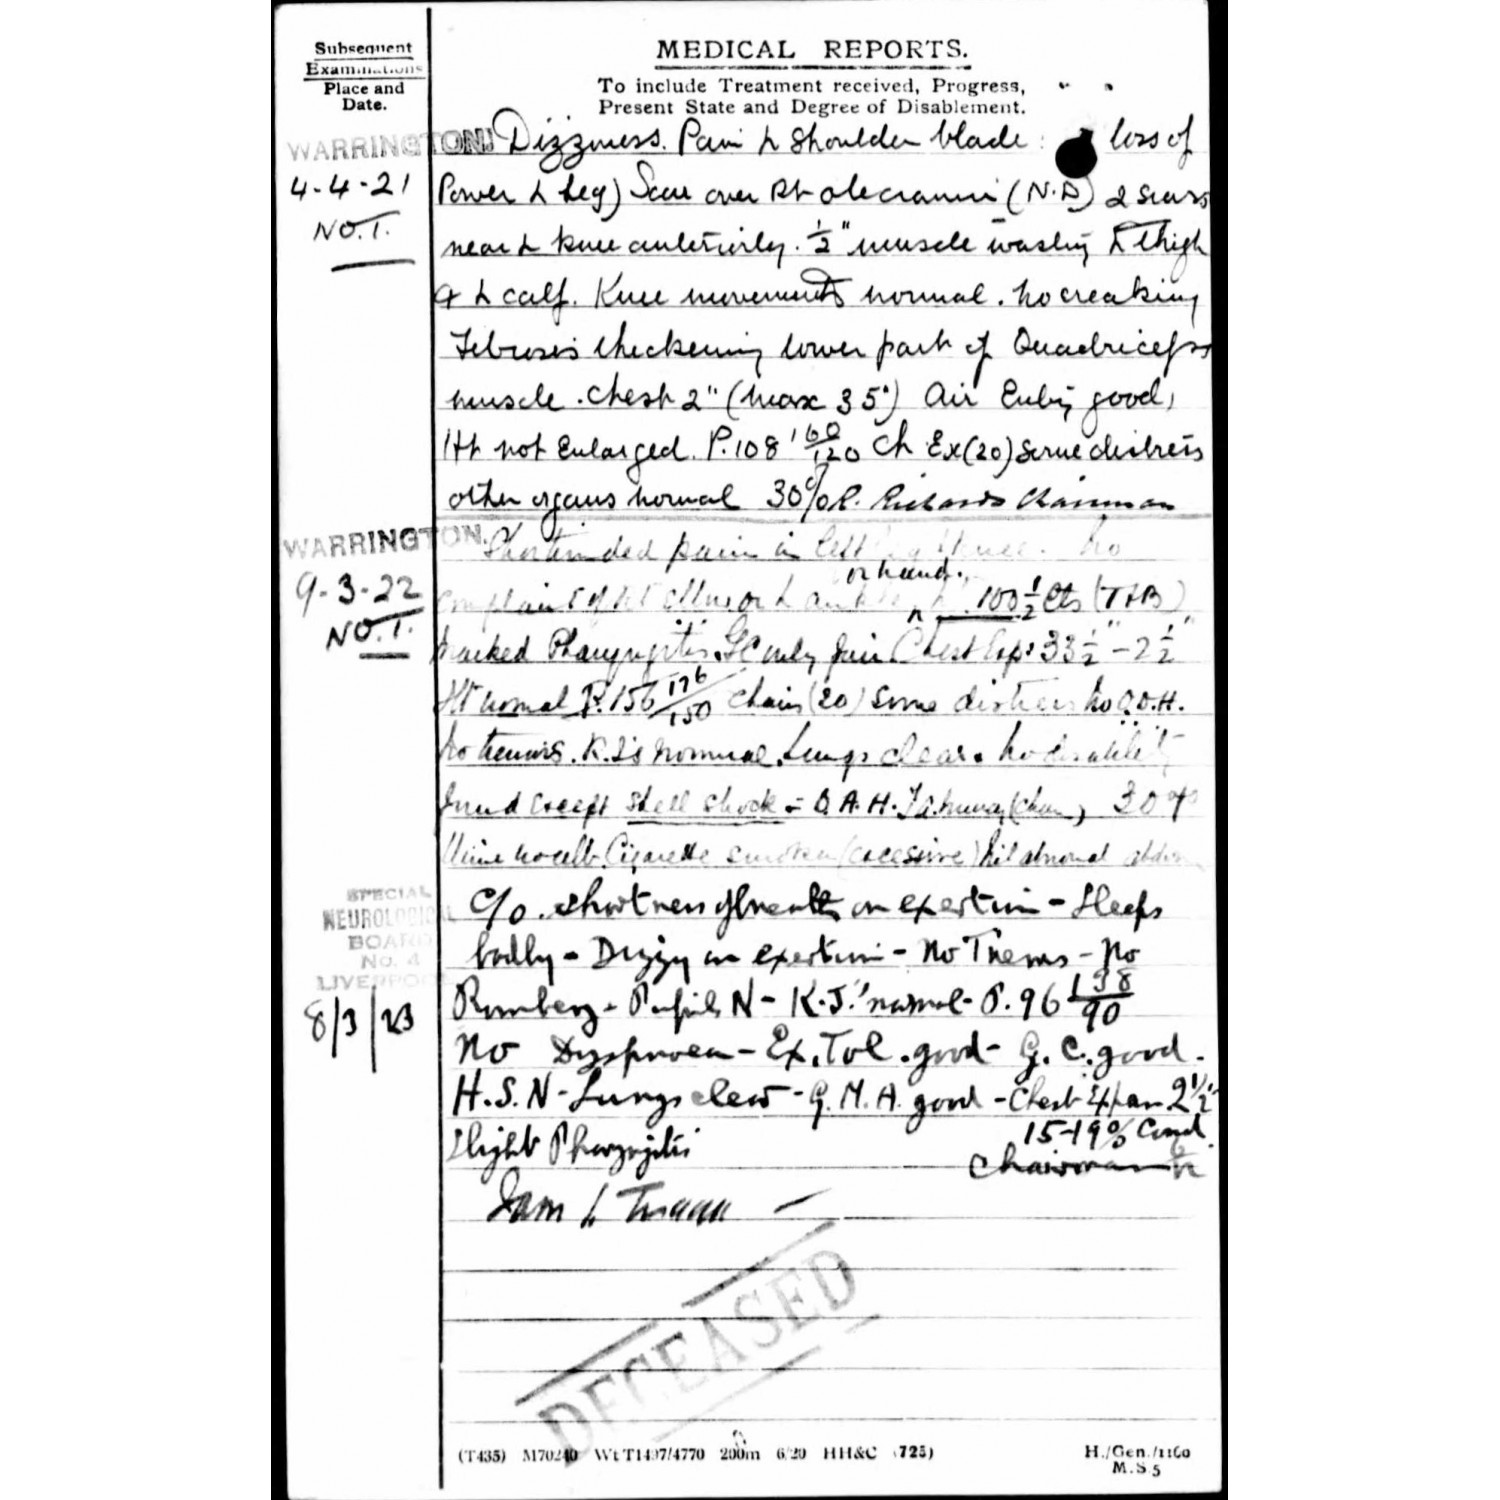 Subsequent
Examinations
Place and
Date.
MEDICAL REPORTS.
To include Treatment received, Progress,
Present State and Degree of Disablement.
WARRINGTON
4-4-21
NO.1.
Dizziness. Pain L Shoulder blade: loss of
Power L Leg) Scar over Rt olecranon (N.D) 2 scars
near L knee anteriorly. 1/2" muscle wasting L thigh
& L calf. Knee movements normal. No creaking
Fibrosis thickening lower part of Quadriceps
muscle. Chest 2" (max 35") Air Entry good,
Ht not Enlarged. P.108 160/120 Ch Ex(20) Some distress
other organs normal 30% R. Richards Chairman
WARRINGTON.
9-3-22
NO.1.
pain in left knee. No
complaint of Rt elbow or L or hand. 100 1/2
marked Pharyngitis. GC only fair. Chest Exp: 33 1/2" - 2 1/2"
Ht normal P. 156 176/150 Chair (20) Some distress No O.O.H.
No tremors. K.J's normal. Lungs clear. No disability
found except shell shock = D.A.H. 30%
Urine no alb. Cigarette smoker (excessive) Nil abnormal
SPECIAL
NEUROLOGICAL
BOARD
No. 4
LIVERPOOL
8/3/23
C/o. shortness of breath on exertion - Sleeps
badly - Dizzy on exertion - No Tremors - No
Romberg - Pupils N - K.J.'s normal - P. 96 138/90
No Dyspnoea - Ex. Tol. good - G.C. good -
H.S.N - Lungs clear - G.M.A. good - Chest Expan 2 1/2"
Slight Pharyngitis
15-19% Cond.
Chairman
DECEASED
(T435) M70240 Wt T1497/4770 200m 6/20 HH&C (725)
H./Gen./1160
M.S.5